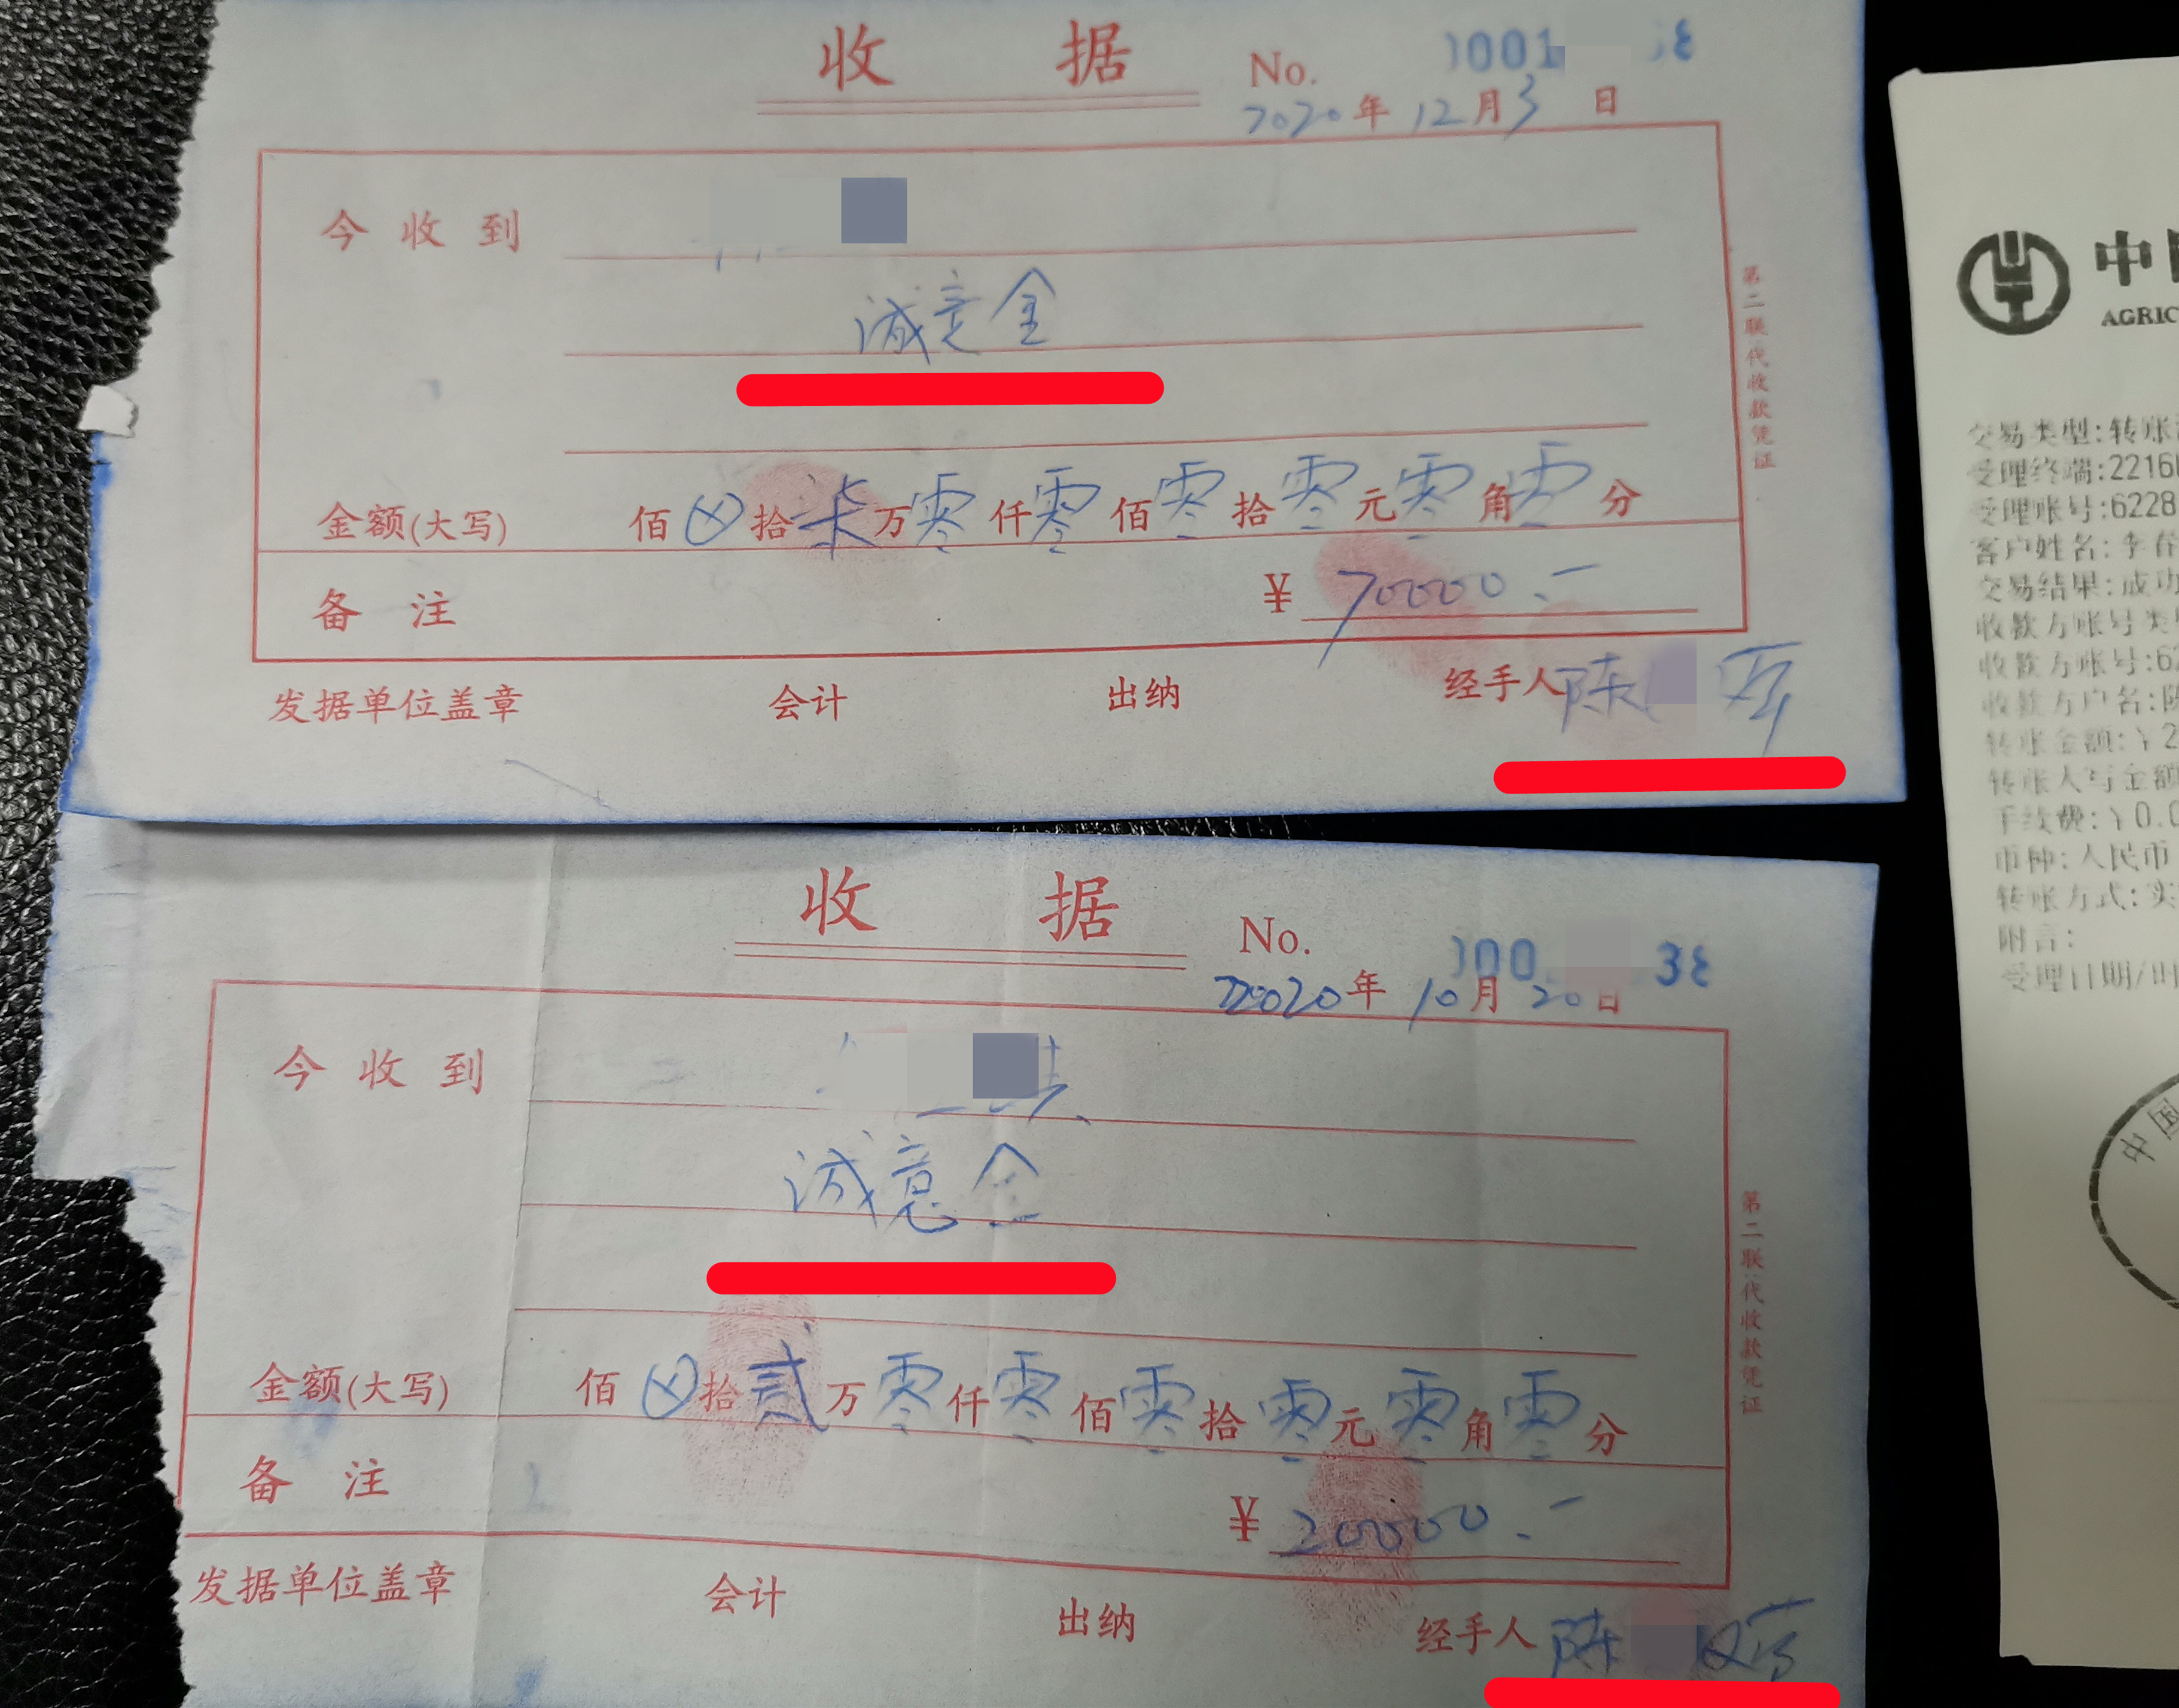 收 据
No. 001
2020年12月3日
今收到
诚意金
金额(大写) 佰 拾柒万零仟零佰零拾零元零角零分
备 注 ¥70000.-
发据单位盖章 会计 出纳 经手人陈
第二联代收款凭证
收 据
No. 00 38
2020年10月20日
今收到
诚意金
金额(大写) 佰 拾贰万零仟零佰零拾零元零角零分
备 注 ¥20000.-
发据单位盖章 会计 出纳 经手人 陈
第二联代收款凭证
中
AGRIC
交易类型:转账
受理终端:2216
受理账号:6228
客户姓名:李春
交易结果:成功
收款方账号类
收款方账号:62
收款方户名:陈
转账金额:¥2
转账大写金额
手续费:¥0.0
币种:人民币
转账方式:实
附言:
受理日期/时
中国